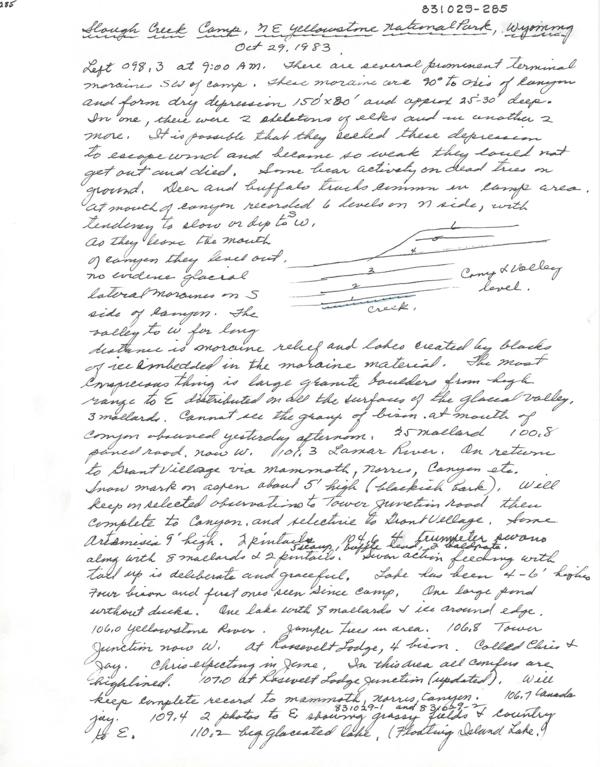 285
831029-285
Slough Creek Camp, NE Yellowstone National Park, Wyoming
Oct 29, 1983.
Left 098.3 at 9:00 AM. There are several prominent terminal
moraines SW of camp. These moraine are 90° to axis of Canyon
and form dry depression 150'x80' and approx 25-30' deep.
In one, there were 2 skeletons of elks and in another 2
more. It is possible that they seeked these depression
to escape wind and became so weak they could not
get out and died. Some bear activity on dead trees on
ground. Deer and buffalo tracks common in camp area.
At mouth of canyon recorded 6 levels on N side, with
tendency to slow or dip to S W.
As they leave the mouth
of canyon they level out.
no evidence glacial
lateral moraines on S
side of canyon. The
valley to W for long
6
5
4
3
2
1
Camp & Valley
level.
Creek.
distance is moraine relief and lakes created by blocks
of ice embedded in the moraine material. The most
conspicious thing is large granite boulders from high
range to E distributed on all the surfaces of the glacial valley.
3 mallards. Cannot see the group of bison at mouth of
canyon observed yesterday afternoon. 25 mallard 100.8
paved road, now W. 101.3 Lamar River. On return
to Grant Village via Mammoth, Norris, Canyon etc.
Snow mark on aspen about 5' high (blackish bark). Will
keep in selected observations to Tower Junction road then
complete to Canyon, and selective to Grant Village. Some
Artemisia 9" high. 2 pintails 104.6 4 trumpeter swans
5 scaup, buffle head, 2 baldpate.
along with 8 mallards & 2 pintails. Swan action feeding with
tail up is deliberate and graceful. Lake has been 4-6' higher
Four bison and first ones seen since camp. One large pond
without ducks. One lake with 8 mallards & ice around edge.
106.0 Yellowstone River. Juniper trees in area. 106.8 Tower
Junction now W. At Roosevelt Lodge, 4 bison. Called Chris &
Jay. Chris expecting in June. In this area all conifers are
highlined. 107.0 at Roosevelt Lodge Junction (updated). Will
keep complete record to Mammoth, Norris, Canyon. 106.7 Canada
jay. 109.4 2 photos to E showing grassy fields & country
831029-1 and 831029-2
to E. 110.2 big glaciated lake, (Floating Island Lake?)